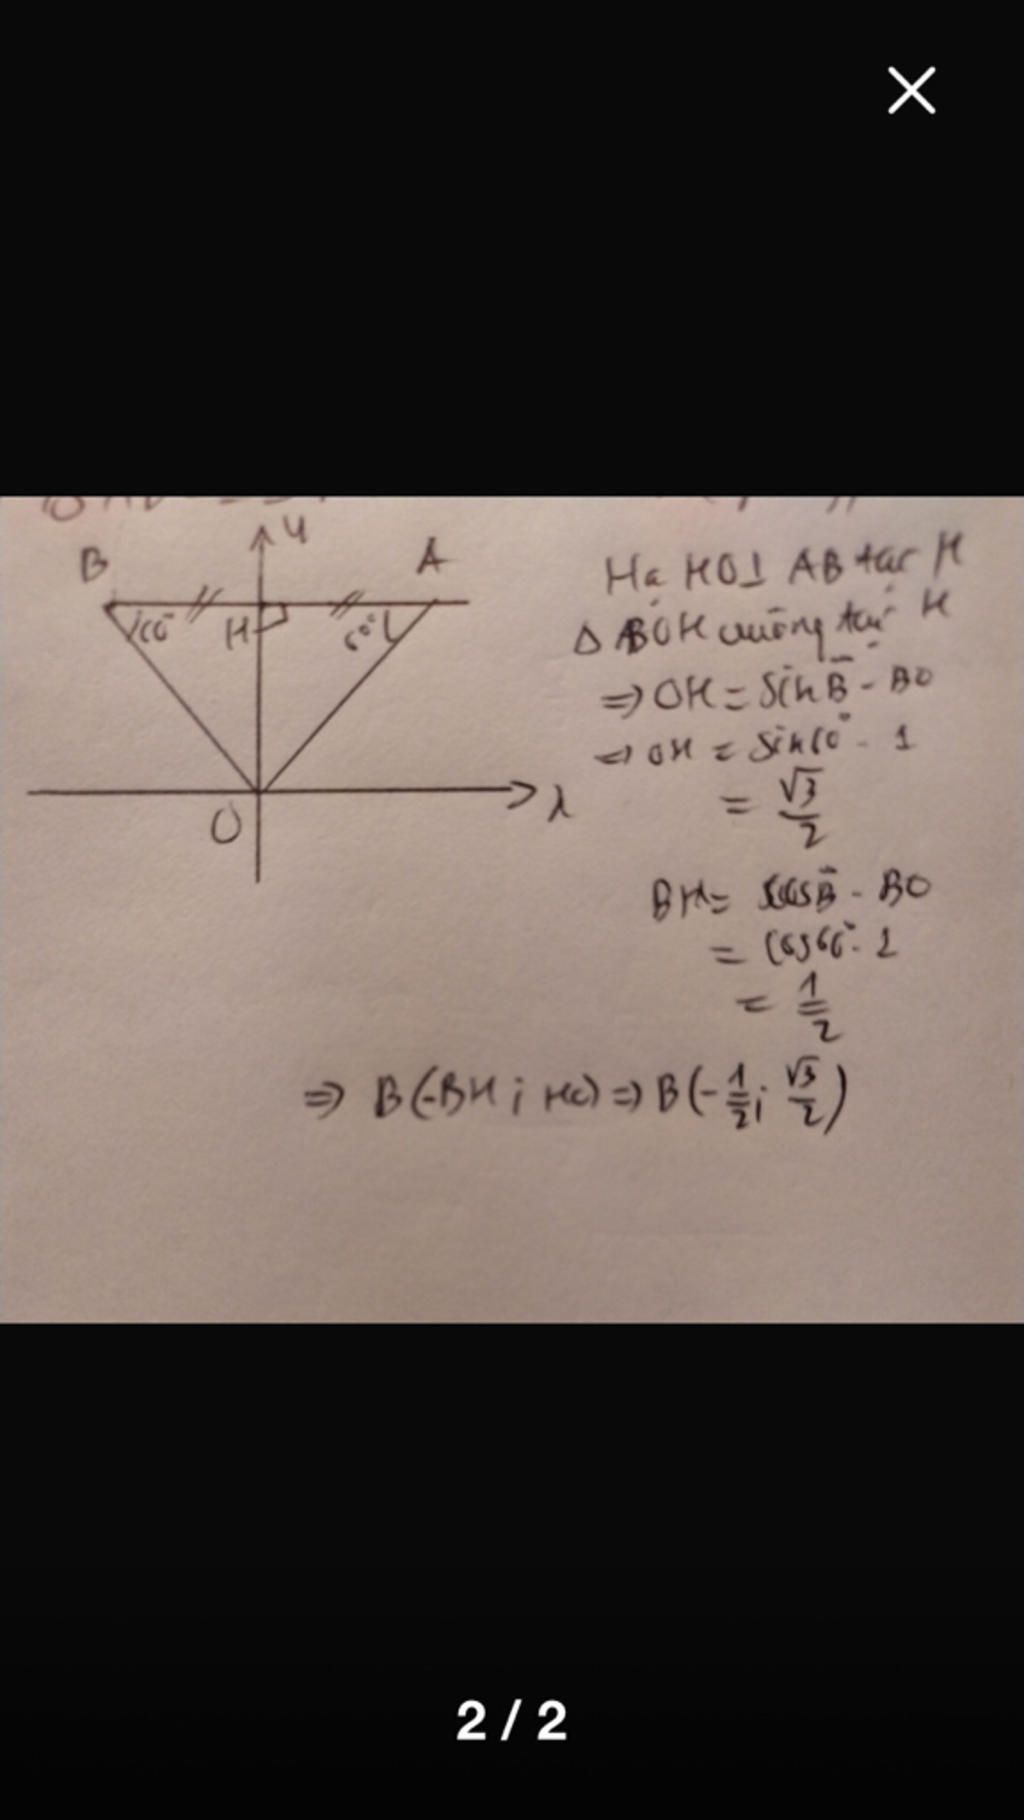 y
B
A
60°
H
60°
x
O
Hạ HO⊥ AB tại H
Δ BOH vuông tại H
⇒ OH = sin B̂ . BO
⇒ OH = sin60° . 1
= √3/2
BH = cosB̂ . BO
= cos60° . 1
= 1/2
⇒ B(-BH ; HO) ⇒ B(-1/2 ; √3/2)
2 / 2